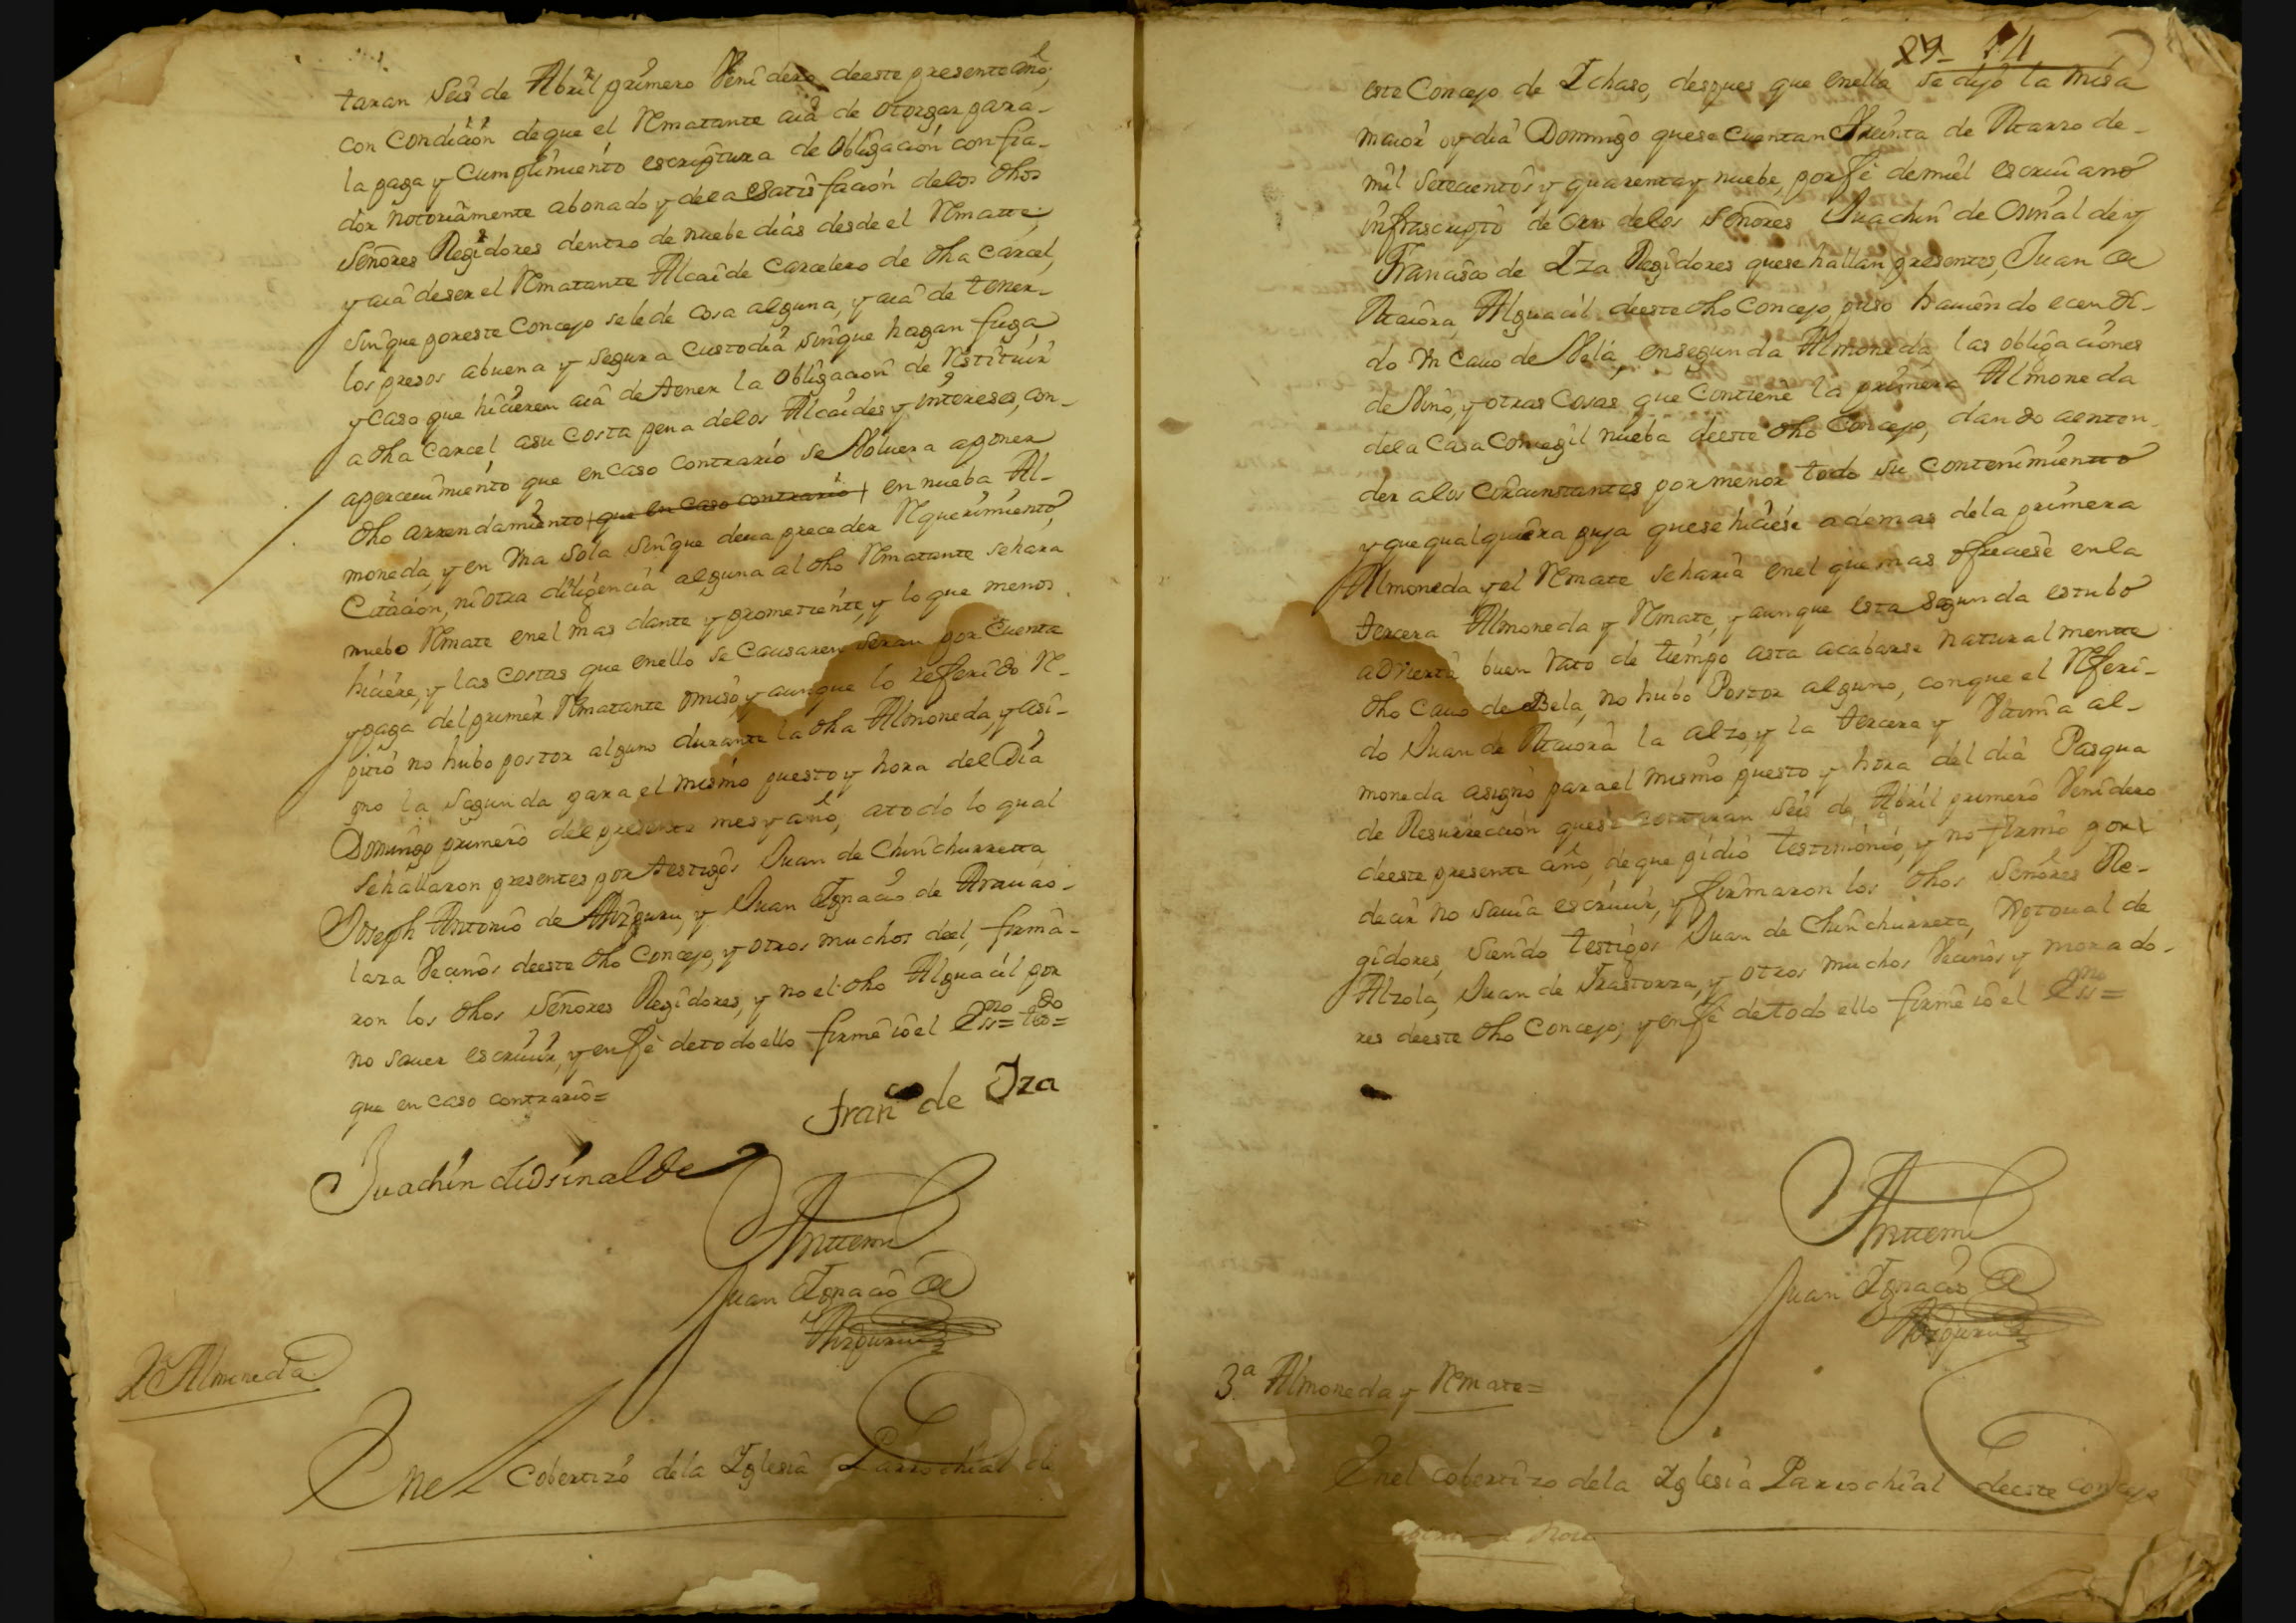 taran seis de Abril primero Venidero deeste presente año,
con condicion deque el Rmatante aiâ de otorgar para
la paga y cumplimiento escriptura de obligacion con fia-
dor notoriamente abonado y dela satisfacion delos dhos
Señores Regidores dentro de nuebe dias desde el Rmatte;
y aiâ deser el Rmatante Alcaide Carcelero de dha Carcel,
sinque poreste Concejo sele de cosa alguna, y aiâ de tener
los presos abuena y segura custodia sinque hagan fuga,
y caso que hicieren aiâ detener la obligacion de Rstituir
a dha Carcel asu costa pena delos Alcaides y intereses, con
apercevimiento que en caso contrario se Voluera aponer
dho arrendamiento que en caso contrario en nueba Al-
moneda, y en Vna sola sinque deua preceder Rquerimiento,
Citacion, ni otra diligencia alguna al dho Rmatante sehara
nuebo Rmate enel mas dante y prometiente, y lo que menos
hiciere, y las costas que enello se causaren seran por cuenta
y paga del primer Rmatante omiso, y aunque lo referido R-
pitio no hubo postor alguno durante la dha Almoneda, y asi-
gno la segunda para el mismo puesto y hora del Dia
Domingo primero del presente mes y año, atodo lo qual
sehallaron presentes por testigos Juan de Chinchurretta,
Joseph Antonio de Aizguru, y Juan Ignacio de Arauao-
laza Vecinos deeste dho Concejo, y otros muchos deel, firma-
ron los dhos Señores Regidores, y no el dho Alguacil por
no sauer escriuir, y enfè detodoello firmè iô el Essno = tdo =
que en caso contrario =
Franco de Iza
Juachin deOsinalde
Anttemi
Juan Ignacio de
Aizguru
2ª Almoneda
Enel Cobertizo dela Iglesia Parrochial de
29 14
este Concejo de Ichaso, despues que enella se dijo la misa
maior oy dia Domingo quese cuentan treinta de Marzo de
mil setecientos y quarenta y nuebe, porfè demi el escriuano
infrascripto de orn delos Señores Juachin de Osinalde y
Francisco de Iza Regidores quese hallan presentes, Juan de
Maiora, Alguacil deeste dho Concejo, puso hauiendo encendi-
do Vn cauo de Vela, ensegunda Almoneda, las obligaciones
de Vino, y otras cosas que contiene la primera Almoneda
dela Casa Concegil nueba deeste dho Concejo, dando aenten-
der alos circunstantes pormenor todo su contenimientto
y que qualquiera puja quese hiciese ademas dela primera
Almoneda y el Rmate seharia enel que mas ofreciese enla
tercera Almoneda y Rmate, y aunque esta segunda estubo
aDuierta buen rato de tiempo asta acabarse naturalmentte
dho Cauo de Bela, no hubo Postor alguno, conque el Rferi-
do Juan de Maiora la alzo, y la tercera y Vltima al-
moneda asigno parael mismo puesto y hora del dia Pasqua
de Resurreccion quese contaran seis de Abril primero Venidero
deeste presente año, deque pidio testimonio, y no firmô por
decir no sauia escriuir, y firmaron los dhos Señores Re-
gidores, siendo testigos Juan de Chinchurreta, Xptoual de
Alzola, Juan de Irastorza, y otros muchos Vecinos y morado-
res deeste dho Concejo, y enfè detodo ello firmè iô el Essno =
Anttemi
Juan Ignacio de
Aizguru
3ª Almoneda y Rmate =
Enel cobertizo dela Iglesia Parrochial deeste concejo